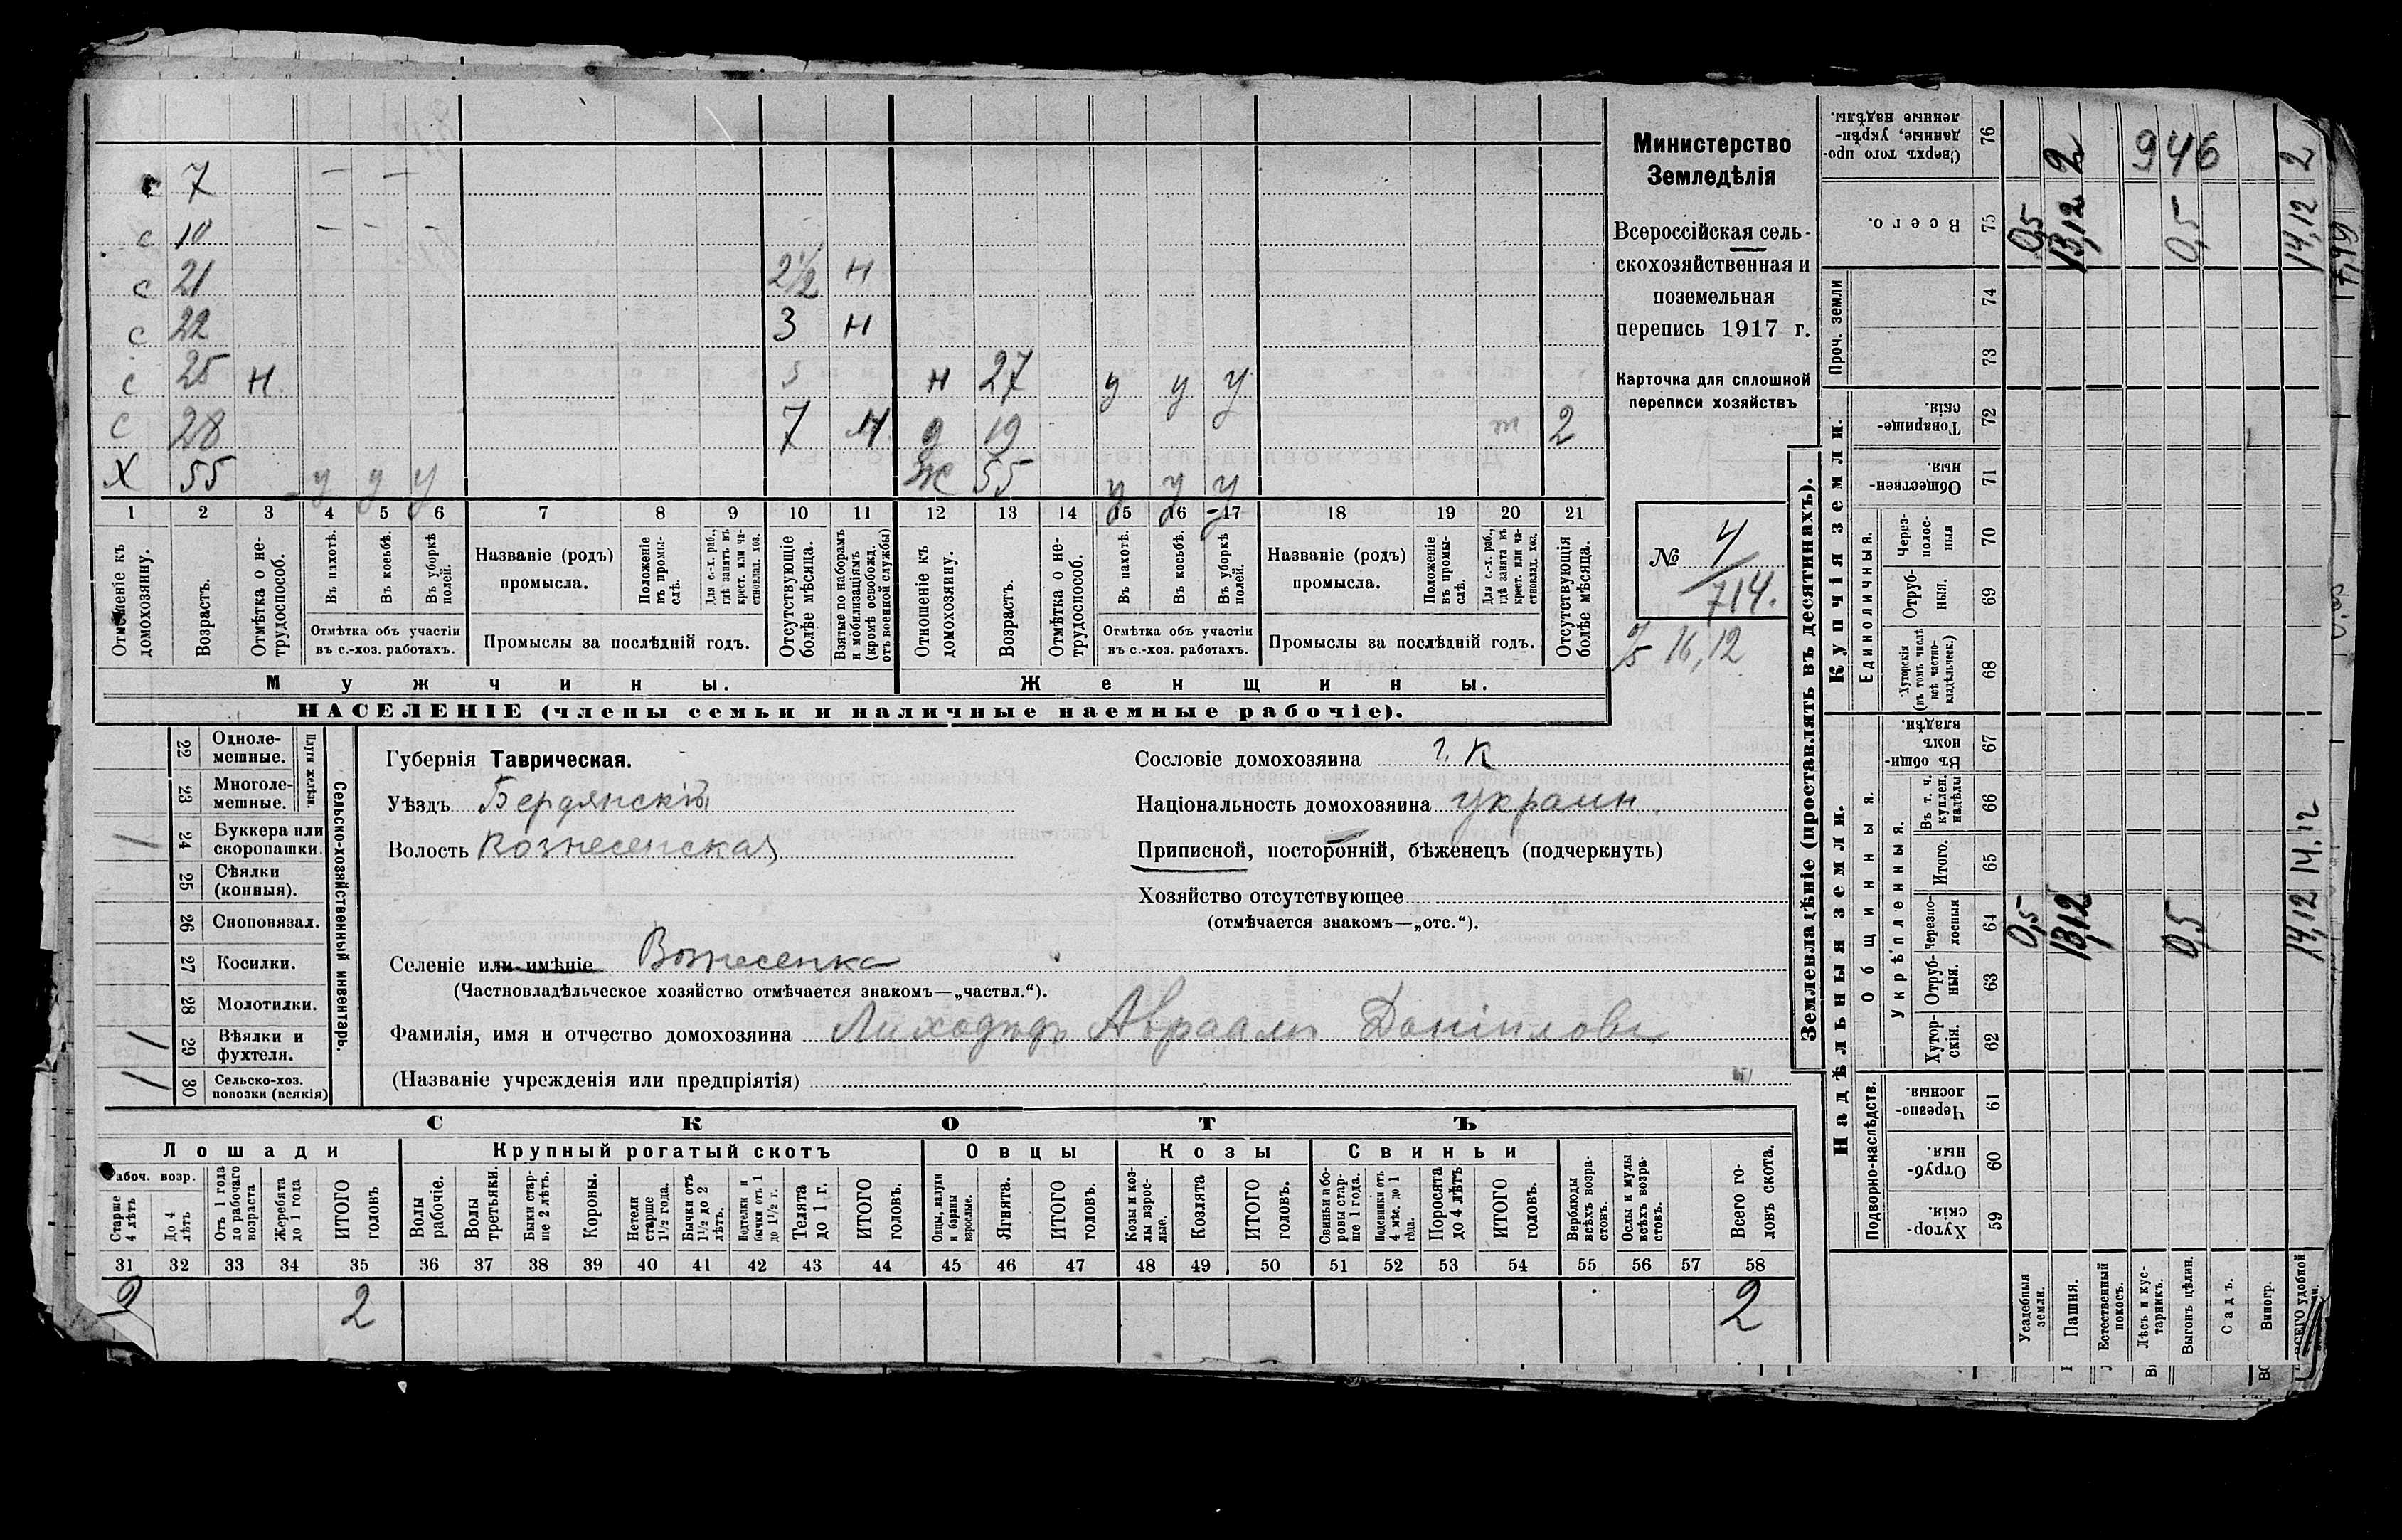 с 7 — —
с 10 — — —
с 21 2½ н
с 22 3 н
с 25 н 3 н 27 у у у
с 28 7 н д 19 т 2
Х 55 у у у ж 55 у у у
1 2 3 4 5 6 7 8 9 10 11 12 13 14 15 16 17 18 19 20 21
Отношеніе къ домохозяину.
Возрастъ.
Отмѣтка о не-
трудоспособ.
Въ пахотѣ.
Въ косьбѣ.
Въ уборкѣ полей.
Отмѣтка объ участіи
въ с.-хоз. работахъ.
Названіе (родъ)
промысла.
Положеніе
въ промы-
слѣ.
Для с.-х. раб.,
гдѣ занятъ въ
крест. или ча-
стновлад. хоз.
Промыслы за послѣдній годъ.
Отсутствующіе
болѣе мѣсяца.
Взятые по наборамъ
и мобилизаціямъ
(кромѣ освобожд.
отъ военной службы)
Отношеніе къ
домохозяину.
Возрастъ.
Отмѣтка о не-
трудоспособ.
Въ пахотѣ.
Въ косьбѣ.
Въ уборкѣ
полей.
Отмѣтка объ участіи
въ с.-хоз. работахъ.
Названіе (родъ)
промысла.
Положеніе
въ промы-
слѣ.
Для с.-х. раб.,
гдѣ занята въ
крест. или ча-
стновлад. хоз.
Промыслы за послѣдній годъ.
Отсутствующія
болѣе мѣсяца.
Мужчины. Женщины.
НАСЕЛЕНІЕ (члены семьи и наличные наемные рабочіе).
Министерство
Земледѣлія
Всероссійская сель-
скохозяйственная и
поземельная
перепись 1917 г.
Карточка для сплошной
переписи хозяйствъ
№ 4/714.
16,12
Сельско-хозяйственный инвентарь.
Плуги желѣзн.
22 Одноле-
мешные.
23 Многоле-
мешные.
1 24 Буккера или
скоропашки.
25 Сѣялки
(конныя).
26 Сноповязал.
27 Косилки.
28 Молотилки.
1 29 Вѣялки и
фухтеля.
1 30 Сельско-хоз.
повозки (всякія)
Губернія Таврическая.
Уѣздъ Бердянскій
Волость Вознесенская
Селеніе или имѣніе Вознесенка
(Частновладѣльческое хозяйство отмѣчается знакомъ—„частвл.“).
Фамилія, имя и отчество домохозяина Лиходѣдъ Авраамъ Даніилов
(Названіе учрежденія или предпріятія)
Сословіе домохозяина г. к
Національность домохозяина украин.
Приписной, посторонній, бѣженецъ (подчеркнуть)
Хозяйство отсутствующее
(отмѣчается знакомъ—„отс.“).
СКОТЪ
Лошади Крупный рогатый скотъ Овцы Козы Свиньи
Рабоч. возр.
Старше
4 лѣтъ
До 4
лѣтъ
Отъ 1 года
до рабочаго
возраста
Жеребята
до 1 года
ИТОГО
головъ
Волы
рабочіе.
Волы
третьяки.
Быки стар-
ше 2 лѣтъ.
Коровы.
Нетели
старше
1½ года.
Бычки отъ
1½ до 2
лѣтъ.
Подтелки и
бычки отъ 1
до 1½ г.
Телята
до 1 г.
ИТОГО
головъ.
Овцы, валухи
и бараны
взрослые.
Ягнята.
ИТОГО
головъ.
Козы и коз-
лы взрос-
лые.
Козлята
ИТОГО
головъ.
Свиньи и бо-
ровы стар-
ше 1 года.
Подсвинки отъ
4 мѣс. до 1
года.
Поросята
до 4 лѣтъ
ИТОГО
головъ.
Верблюды
всѣхъ возра-
стовъ.
Ослы и мулы
всѣхъ возра-
стовъ.
Всего го-
ловъ скота.
31 32 33 34 35 36 37 38 39 40 41 42 43 44 45 46 47 48 49 50 51 52 53 54 55 56 57 58
2 2 2
Землевладѣніе (проставлять въ десятинахъ).
Надѣльныя земли. Купчія земли. Проч. земли
Подворно-наслѣдств.
Общинныя.
Укрѣпленныя.
Единоличныя.
Хутор-
скія. 59
Отруб-
ныя. 60
Черезпо-
лосныя 61
Хутор-
скія. 62
Отруб-
ныя. 63
Черезпо-
лосныя 64
Итого. 65
Въ т. ч.
куплен.
надѣлы 66
Въ общин-
номъ
владѣн. 67
Хуторскія
(въ томъ числѣ
всѣ частно-
владѣльческ.) 68
Отруб-
ныя. 69
Через-
полос-
ныя 70
Обществен-
ныя 71
Товарище-
скія. 72
73
74
Всего. 75
Сверхъ того про-
данные, укрѣп-
ленные надѣлы. 76
Усадебныя
земли. 0,5 0,5
Пашня. 13,12 13,12 2
Естественный
покосъ.
Лѣсъ и кус-
тарникъ.
Выгонъ цѣлин. 0,5 0,5
946
Садъ.
Виногр.
ВСЕГО удобной 14,12 14.12 14,12 2